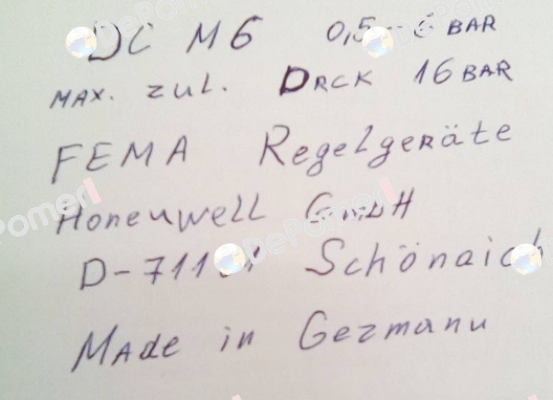 DC M6 0,5 - 6 BAR
MAX. ZUL. DRCK 16 BAR
FEMA Regelgeräte
Honeuwell GmbH
Schönaich
Made in Germanu